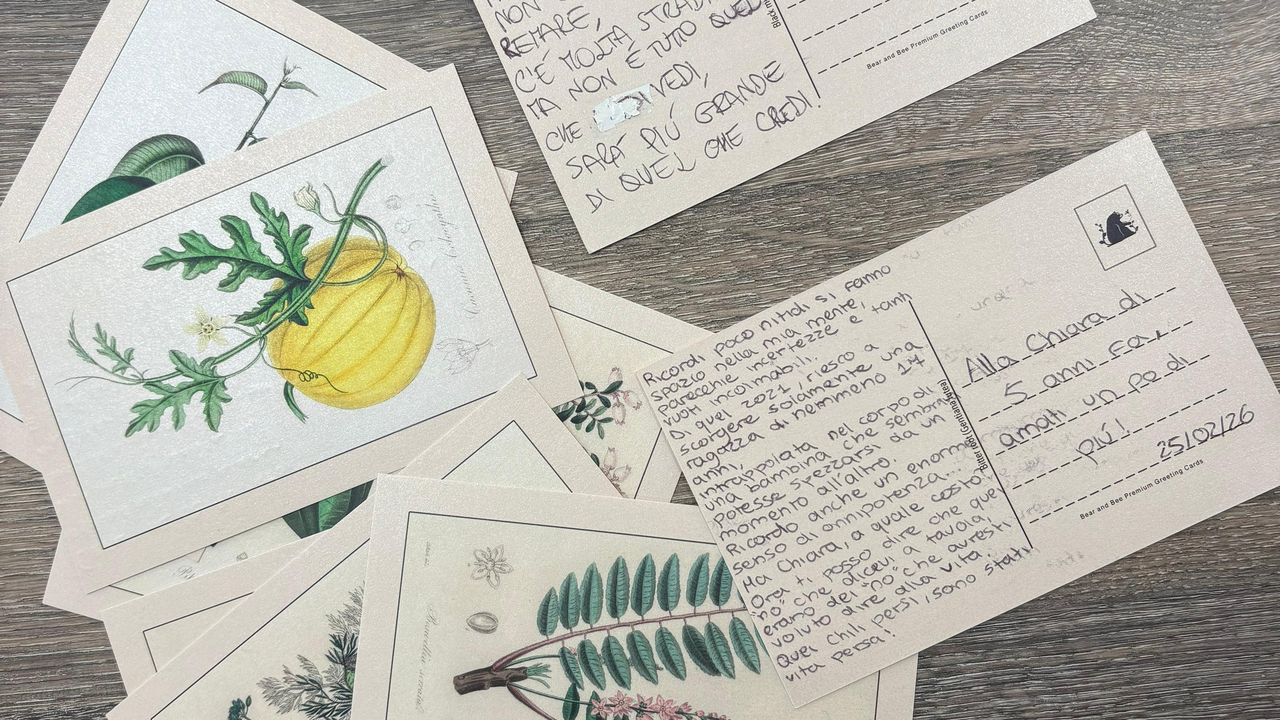 NON
REMARE,
C'È MOLTA STRADA
MA NON È TUTO QUEL
CHE VEDI,
SARÁ PIÚ GRANDE
DI QUEL CHE CREDI!
Black m
Bear and Bee Premium Greeting Cards
Ricordi poco nitidi si fanno
spazio nella mia mente,
parecchie incertezze e tanti
vuoti incolmabili.
Di quel 2021, riesco a
scorgere solamente una
ragazza di nemmeno 17
anni,
intrappolata nel corpo di
una bambina che sembra
potesse spezzarsi da un
momento all'altro.
Ricordo anche un enorme
senso di onnipotenza...
Ma Chiara, a quale costo?
Ora ti posso dire che quei
"no" che dicevi a tavola,
erano dei "no" che avresti
voluto dire alla vita.
Quei chili persi, sono stati
vita persa!
Bitter root (Gentiana lutea)
Alla Chiara di
5 anni fa,
amati un po di
più!
25/02/26
Bear and Bee Premium Greeting Cards